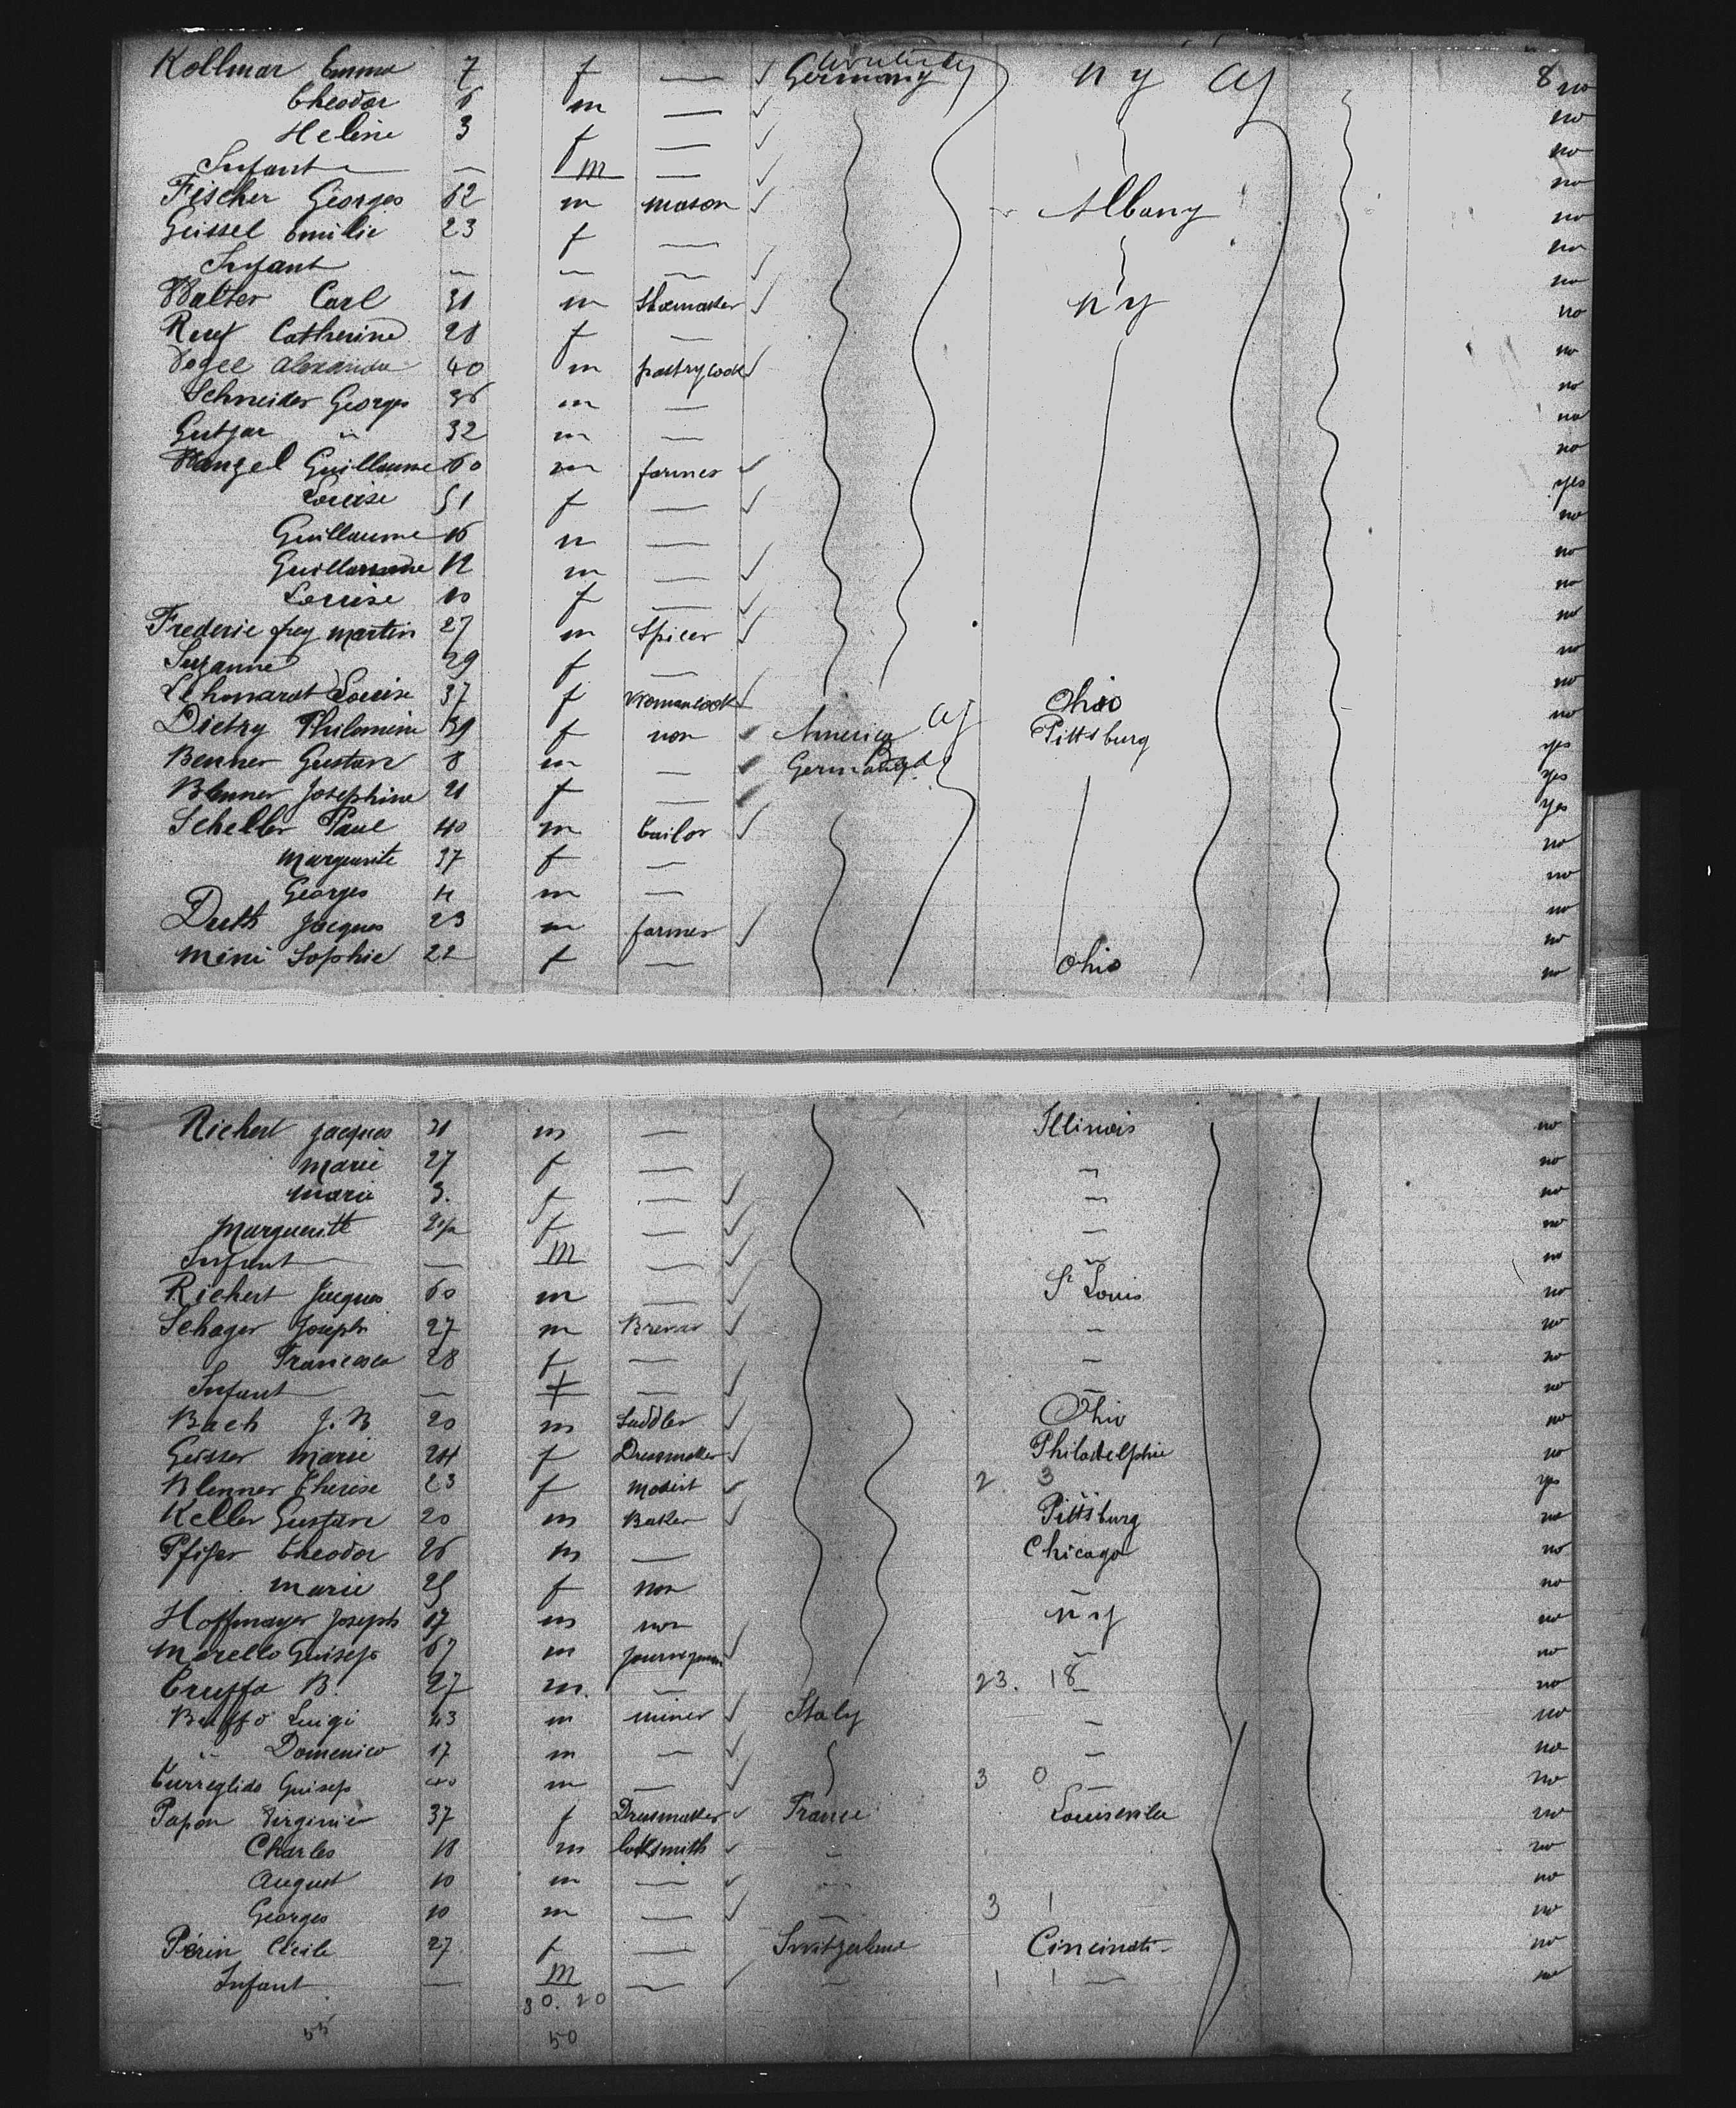 Kollmar Emma 7 f — Germany N Y 8 no
Theodor 6 m — no
Helene 3 f — no
Infant — m — no
Fischer Georges 62 m mason Albany no
Geissel Emilie 23 f — no
Infant — — — no
Walter Carl 31 m Shoemaker N Y no
Ruef Catherine 28 f — no
Vogel Alexandre 40 m pastrycook no
Schneider Georges 36 m — no
Gutjar " 32 m — no
Wangel Guillaume 60 m farmer yes
Louise 51 f — no
Guillaume 16 m — no
Guillaume 12 m — no
Louise 10 f — no
Frederic frey martin 27 m Spicer no
Suzanne 29 f — no
Lehonardt Louise 37 f Womancook Ohio no
Dietry Philomene 39 f non America Pittsburg yes
Benner Gustave 8 m — Germany yes
Blenner Josephine 21 f — yes
Scheller Paul 40 m tailor no
Marguerite 37 f — no
Georges 11 m — no
Duth Jacques 23 m farmer no
Mini Sophie 22 f — Ohio no
Richert Jacques 31 m — Illinois no
Marie 27 f — " no
Maria 3. f — " no
Marguerite 2 1/2 f — " no
Infant — m — " no
Richert Jacques 60 m — St Louis no
Schager Joseph 27 m Brewer " no
Francesca 28 f — " no
Infant — f — " no
Bach J. B 20 m Saddler Ohio no
Geisser Marie 24 f Dressmaker Philadelphie no
Blenner Therese 23 f modist 2 3 " yes
Keller Gustave 20 m Baker Pittsburg no
Pfifer Theodor 26 m — Chicago no
Marie 25 f non " no
Hoffmayer Joseph 17 m non N Y no
Morello Guisep 67 m Journeyman " no
Truffa B. 27 m. — 23. 18 " no
Buffo Luigi 43 m miner Italy " no
" Domenico 17 m — " no
Turreglido Guisep 40 m — 3 0 " no
Papon Virginie 37 f Dressmaker France Louisevila no
Charles 18 m locksmith " no
August 10 m — " no
Georges 10 m — " 3 1 no
Périn Cecile 27 f — Switzerland Cincinati no
Infant — m — " 1 1 — no
30. 20
55 50